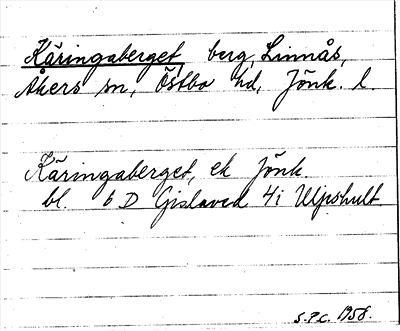 Käringaberget, berg, Linnås,
Åkers sn, Östbo hd, Jönk. l.
Käringaberget, ek Jönk
bl. 6 D Gislaved 4i Ulpshult
S.P.C. 1958.